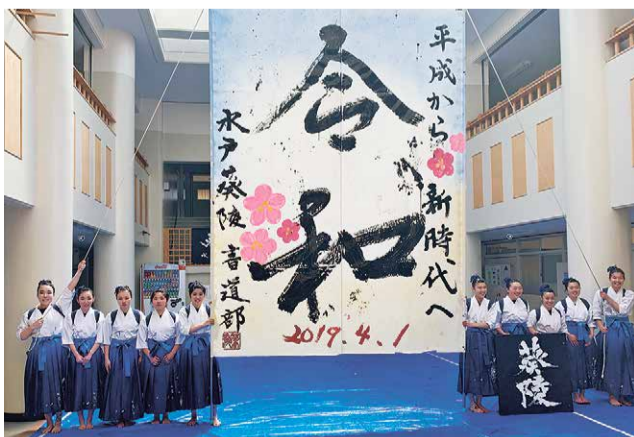 平成から新時代へ
令和
水戸葵陵 書道部
2019.4.1
葵陵